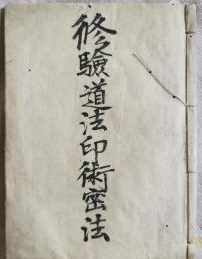 修驗道法印術密法